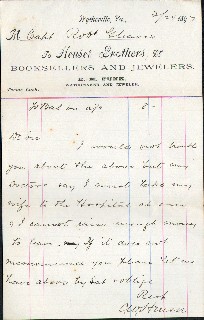 Wytheville, Va., 189
M Capt Robt
To Heuser Brothers, Dr
BOOKSELLERS AND JEWELERS.
WATCHMAKER AND JEWELER.
Terms Cash.
To Bal on a/c 8-
Dr Sir
I would not push
you about the above but my
Doctors say I must take my
wife to the Hospital at once
& I cannot raise enough money
to leave. If it does not
inconvenience you please let us
have above by Sat & oblige
Resp